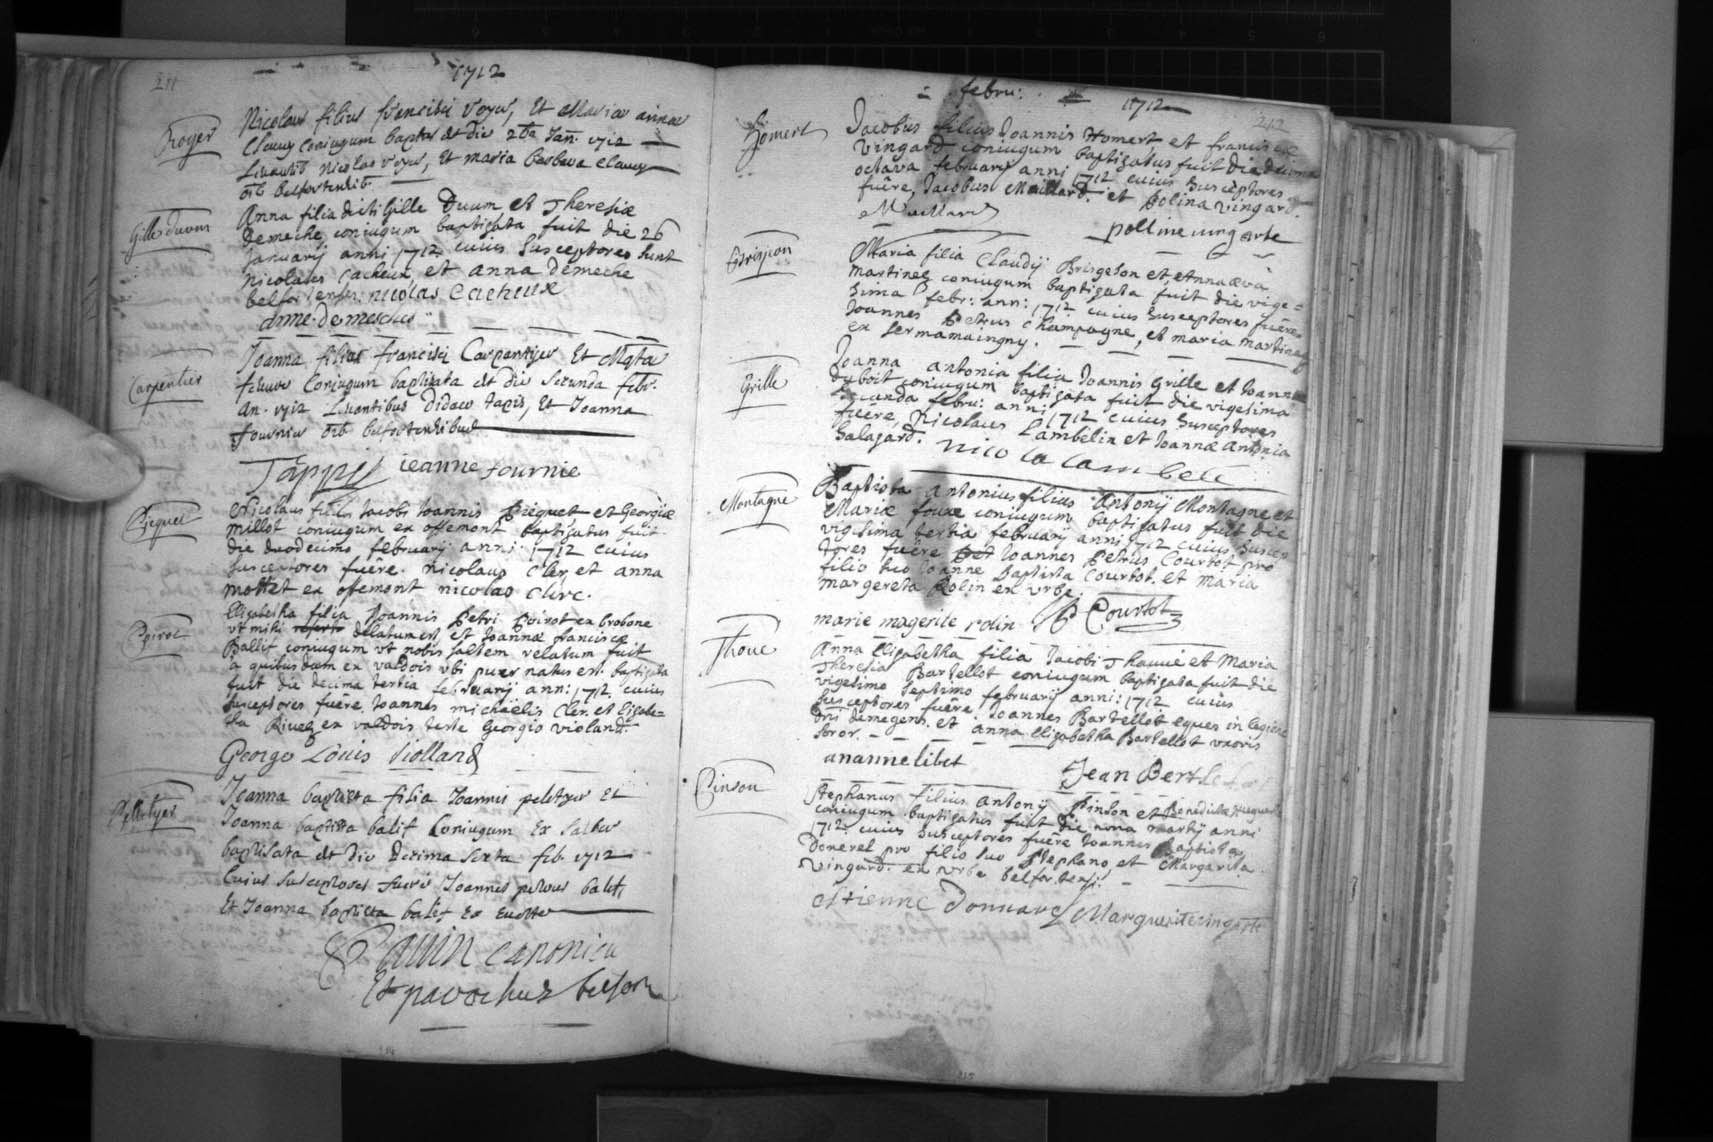 211
1712
Royer
Nicolaus filius francisci Voyer, Et Maria anna
Clauey Coniugum baptus est die 2bta Jan. 1712
Levantib Nicolas Voyer, Et maria barbara Clauey
oīb belfortensib.
Gille duum
Anna filia dicti Gille Duum et Theresiæ
Demeche coniugum baptizata fuit die 26
Januarij anni 1712 cuius susceptores sunt
Nicolaus Cacheux et anna demeche
belfortenses. nicolas Cacheux
anne demesches
Carpentier
Joanna filia francisci Carpentyer Et Mgta
Coniugum baptizata est die Secunda febr.
An. 1712 Levantibus didaco tapis, Et Joanna
fournier oīb belfortensibus
Tappis ieanne fournie
Piequet
Nicolaus filius Jacobi Joannis Piequet et Georgiæ
Millot coniugum ex offemont baptizatus fuit
die duodecimo februarij anni 1712 cuius
susceptores fuêre. nicolaus Cler, et anna
mottet ex offemont nicolas clerc.
Poirot
Elizabetha filia Joannis Petri Poirot ex brobone
vt mihi delatum est, et Joannæ franciscæ
Ballif coniugum vt nobis saltem relatum fuit
a quibusdam ex valdois vbi puer natus est. baptizata
fuit die decima tertia februarij ann: 1712. cuius
susceptores fuêre Joannes michaëlis Cler. et Elizabe=
tha ex valdois teste Georgio violand.
George Louis Violland
Pelletyer
Joanna baptista filia Joannis peletyer Et
Joanna baptista balif Coniugum Ex
baptisata est die decima sexta feb. 1712
Cuius susceptores fuere Joannes petrus balif,
Et Joanna baptista balif Ex
canonicu
Et parochus belfort
febru:
1712
212
Homert
Jacobus filius Joannis Homert et franciscæ
Vingard coniugum baptizatus fuit die decima
octava februarij anni 1712 cuius susceptores
fuêre, Jacobus Maillard. et Polina Vingard.
Maillard
polline uingarte
Brisjon
Maria filia Claudij Brisgeson et Annæ eva
Martinez coniugum baptizata fuit die vige=
sima febr: ann: 1712 cuius susceptores fuêre
Joannes Petrus Champagne, et maria martinez
ex sermamaingny.
Grille
Joanna antonia filia Joannis Grille et Joanne
duboit coniugum baptizata fuit die vigesima
secunda febru: anni 1712 cuius susceptores
fuêre, Nicolaus Lambelin et Joannæ Antonia
Salagard. nico la lambele
Montagne
Baptista antonius filius Antonij Montagne et
Mariæ coniugum baptizatus fuit die
vigesima tertia februarij anni 1712 cuius suscep
tores fuêre Joannes Petrus Courtot pro
filio suo Joanne Baptista Courtot. et maria
margereta Rolin ex vrbe.
marie magerite rolin P Courtot
Thoue
Anna Elizabetha filia Jacobi Thauue et Maria
Theresia Bartellot coniugum baptizata fuit die
vigesimo septimo februarij anni: 1712 cuius
susceptores fuêre. Joannes Bartellot eques in legione
dni demegens. et anna Elizabetha Bartellot vxoris
soror.
ananne libet Jean Bertelo
Pinson
Stephanus filius Antonij Pinson et Benedictæ
coniugum baptizatus fuit die nona martij anni
1712 cuius susceptores fuêre Joannes Baptista
Doneret pro filio suo Stephano et Margarita
Vingard. ex vrbe belfortensi.
Estienne Donnare Marguerite ving arte